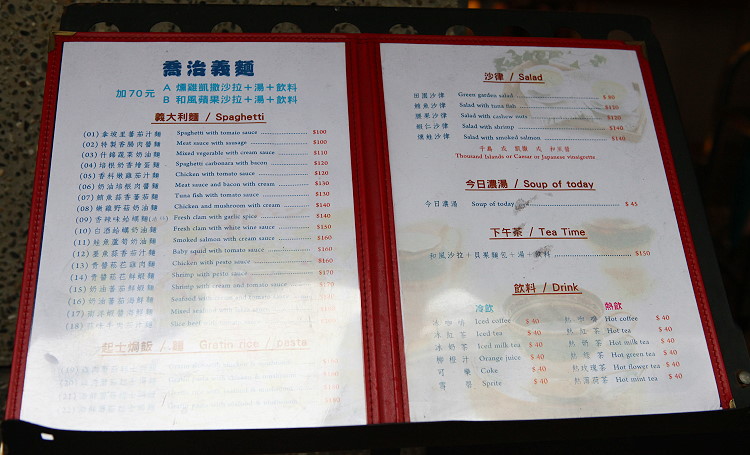 喬治義麵
加70元 A 燻雞凱撒沙拉+湯+飲料
B 和風蘋果沙拉+湯+飲料
義大利麵 / Spaghetti
(01) 拿坡里蕃茄汁麵 Spaghetti with tomato sauce $100
(02) 特製香腸肉醬麵 Meat sauce with sausage $100
(03) 什錦蔬菜奶油麵 Mixed vegetable with cream sauce $110
(04) 培根奶香燴蛋麵 Spaghetti carbonara with bacon $120
(05) 香料燉雞茄汁麵 Chicken with tomato sauce $120
(06) 奶油培根肉醬麵 Meat sauce and bacon with cream $130
(07) 鮪魚蒜香蕃茄麵 Tuna fish with tomato sauce $130
(08) 嫩雞野菇奶油麵 Chicken and mushroom with cream $140
(09) 香辣味蛤蠣麵 Fresh clam with garlic spice $140
(10) 白酒蛤蠣奶油麵 Fresh clam with white wine sauce $150
(11) 鮭魚蘆筍奶油麵 Smoked salmon with cream sauce $160
(12) 墨魚蒜香茄汁麵 Baby squid with tomato sauce $160
(13) 青醬茄花雞肉麵 Chicken with pesto sauce $160
(14) 青醬茄花鮮蝦麵 Shrimp with pesto sauce $170
(15) 奶油蕃茄鮮蝦麵 Shrimp with cream and tomato sauce $170
(16) 奶油蕃茄海鮮麵 Seafood with cream and tomato sauce
(17) 海鮮麵 Mixed seafood with
(18) Slice beef
起士焗飯 / 麵 Gratin rice / pasta
沙律 / Salad
田園沙律 Green garden salad $ 80
鮪魚沙律 Salad with tuna fish $120
腰果沙律 Salad with cashew nuts $120
蝦仁沙律 Salad with shrimp $140
燻鮭沙律 Salad with smoked salmon $140
千島 或 凱撒 或 和風醬
Thousand Islands or Caesar or Japanese vinaigrette
今日濃湯 / Soup of today
今日濃湯 Soup of today $ 45
下午茶 / Tea Time
和風沙拉+貝果麵包+湯+飲料 $150
飲料 / Drink
冰飲 熱飲
冰咖啡 Iced coffee $ 40 熱咖啡 Hot coffee $ 40
冰紅茶 Iced tea $ 40 熱紅茶 Hot tea $ 40
冰奶茶 Iced milk tea $ 40 熱奶茶 Hot milk tea $ 40
柳橙汁 Orange juice $ 40 熱綠茶 Hot green tea $ 40
可樂 Coke $ 40 熱玫瑰茶 Hot flower tea $ 40
雪碧 Sprite $ 40 熱薄荷茶 Hot mint tea $ 40